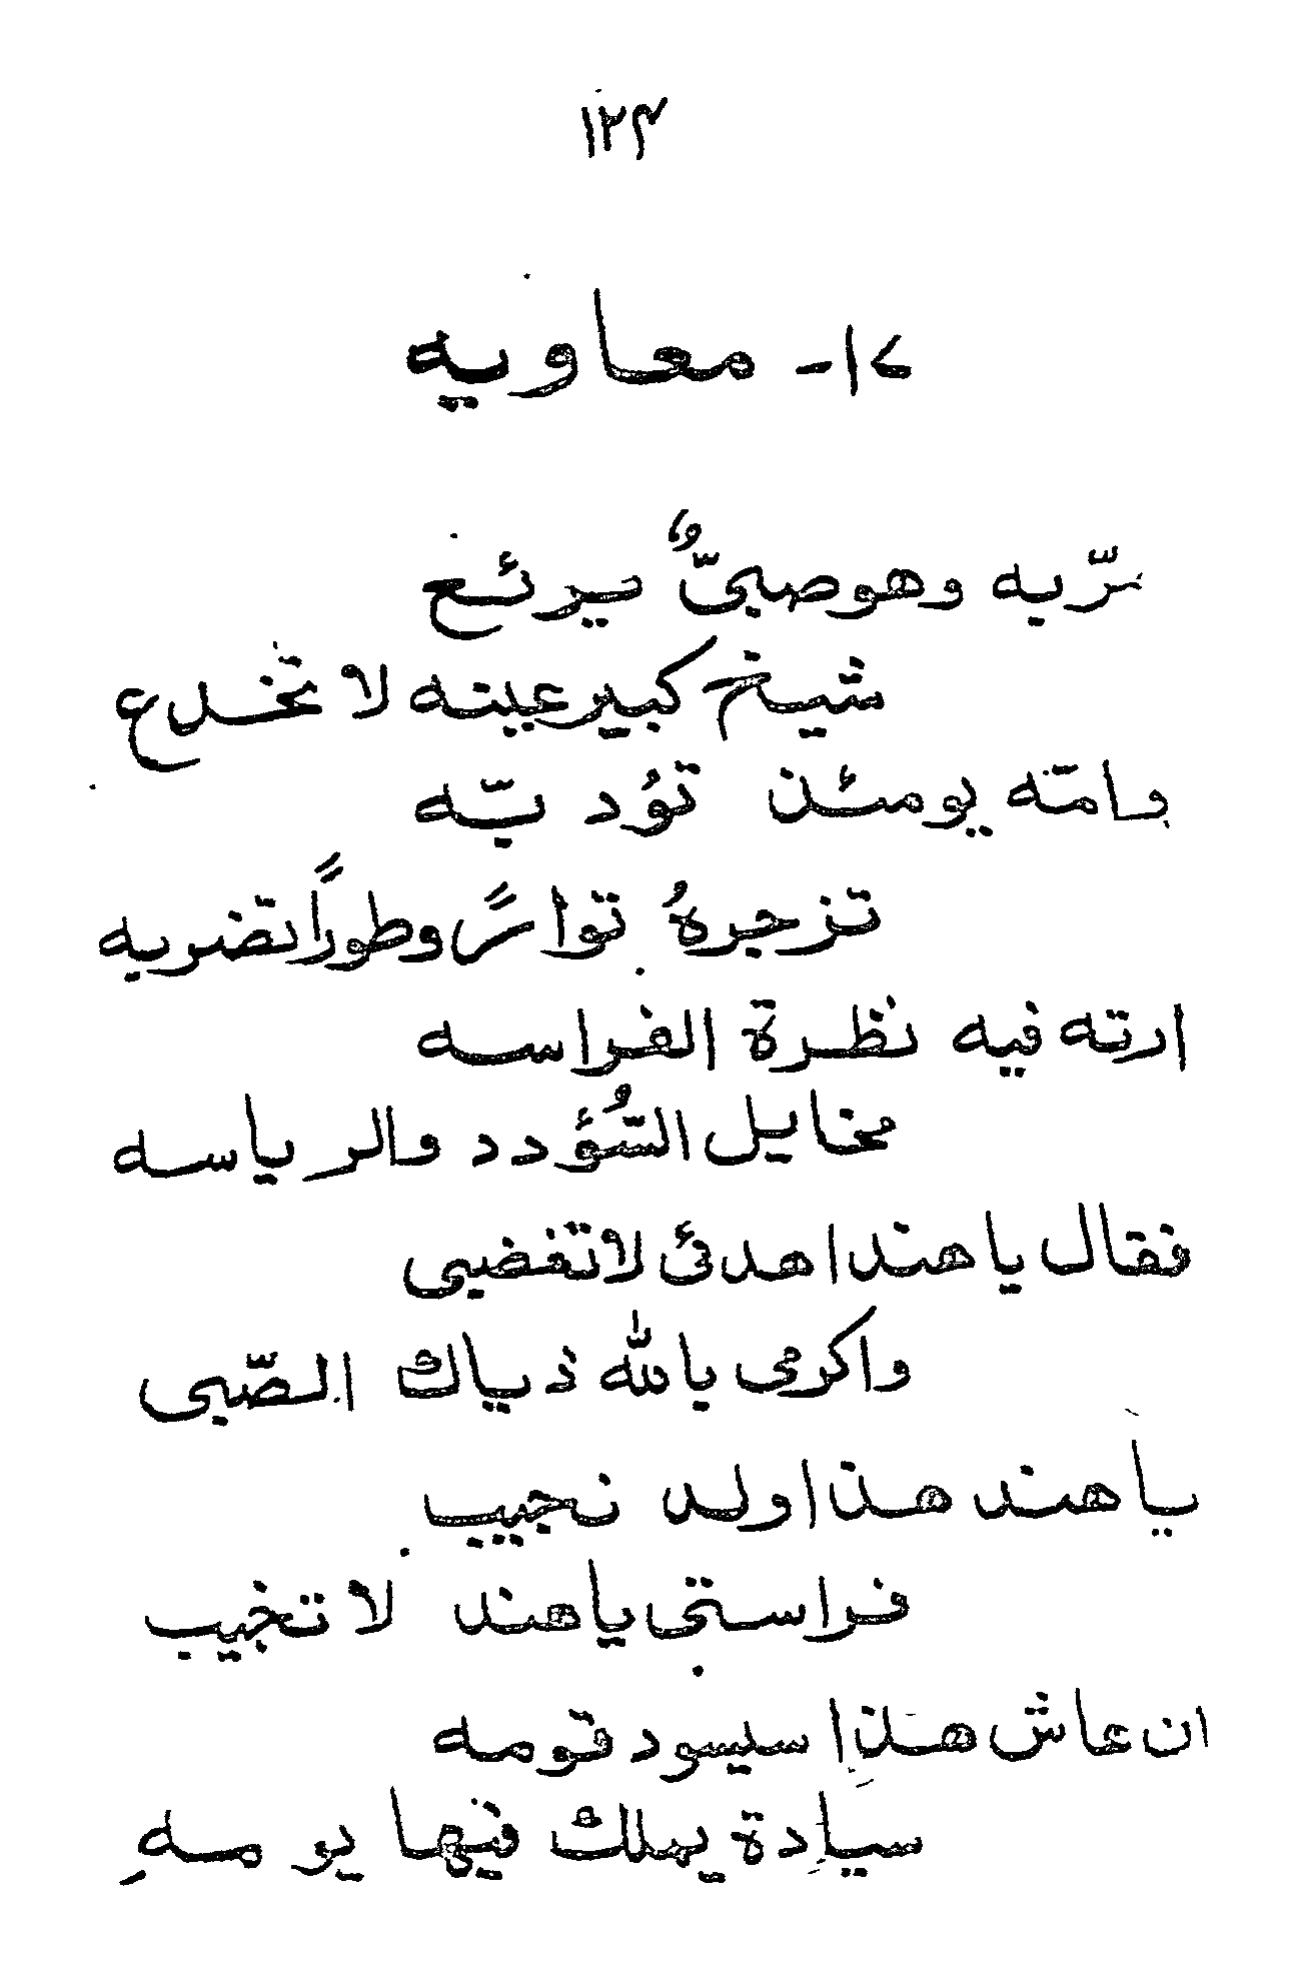 ١٢٣
١٧- معاويه
مرّ به وهو صبيٌّ يرئع
شيخ كبير عينه لا تخدع
وامّه يومئن تؤد بّه
تزجرهُ توا رً وطوراً تضربه
ارته فيه نظرة الفراسه
مخايل السُّؤدد والرياسه
فقال يا هند اهدئ لا تغضبى
واكرمى بالله ذياك الصّبى
يا هند هذا ولد نجيب
فراستى يا هند لا تخيب
ان عاش هذا سيسود قومه
سيادة يملك فيها يومسهِ